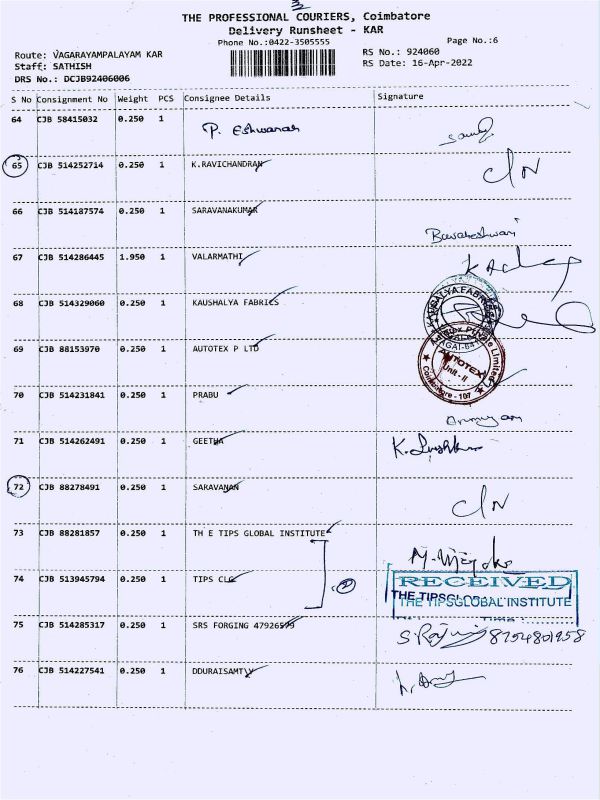 3
THE PROFESSIONAL COURIERS, Coimbatore
Delivery Runsheet - KAR
Phone No.:0422-3505555
Page No.:6
Route: VAGARAYAMPALAYAM KAR
RS No.: 924060
Staff: SATHISH
RS Date: 16-Apr-2022
DRS No.: DCJB92406006
S No Consignment No Weight PCS Consignee Details Signature
64 CJB 58415032 0.250 1 P. Eshwaran
65 CJB 514252714 0.250 1 K.RAVICHANDRAN C/N
66 CJB 514187574 0.250 1 SARAVANAKUMAR
67 CJB 514286445 1.950 1 VALARMATHI
68 CJB 514329060 0.250 1 KAUSHALYA FABRICS
KAUSHALYA FABRICS
69 CJB 88153970 0.250 1 AUTOTEX P LTD
Autotex Private Limited
AUTOTEX
Unit - II
Coimbatore - 107
70 CJB 514231841 0.250 1 PRABU
71 CJB 514262491 0.250 1 GEETHA
72 CJB 88278491 0.250 1 SARAVANAN C/N
73 CJB 88281857 0.250 1 TH E TIPS GLOBAL INSTITUTE
74 CJB 513945794 0.250 1 TIPS CLG 2
RECEIVED
THE TIPSGLOBAL INSTITUTE
75 CJB 514285317 0.250 1 SRS FORGING 47926579 8754801958
76 CJB 514227541 0.250 1 DDURAISAMTY